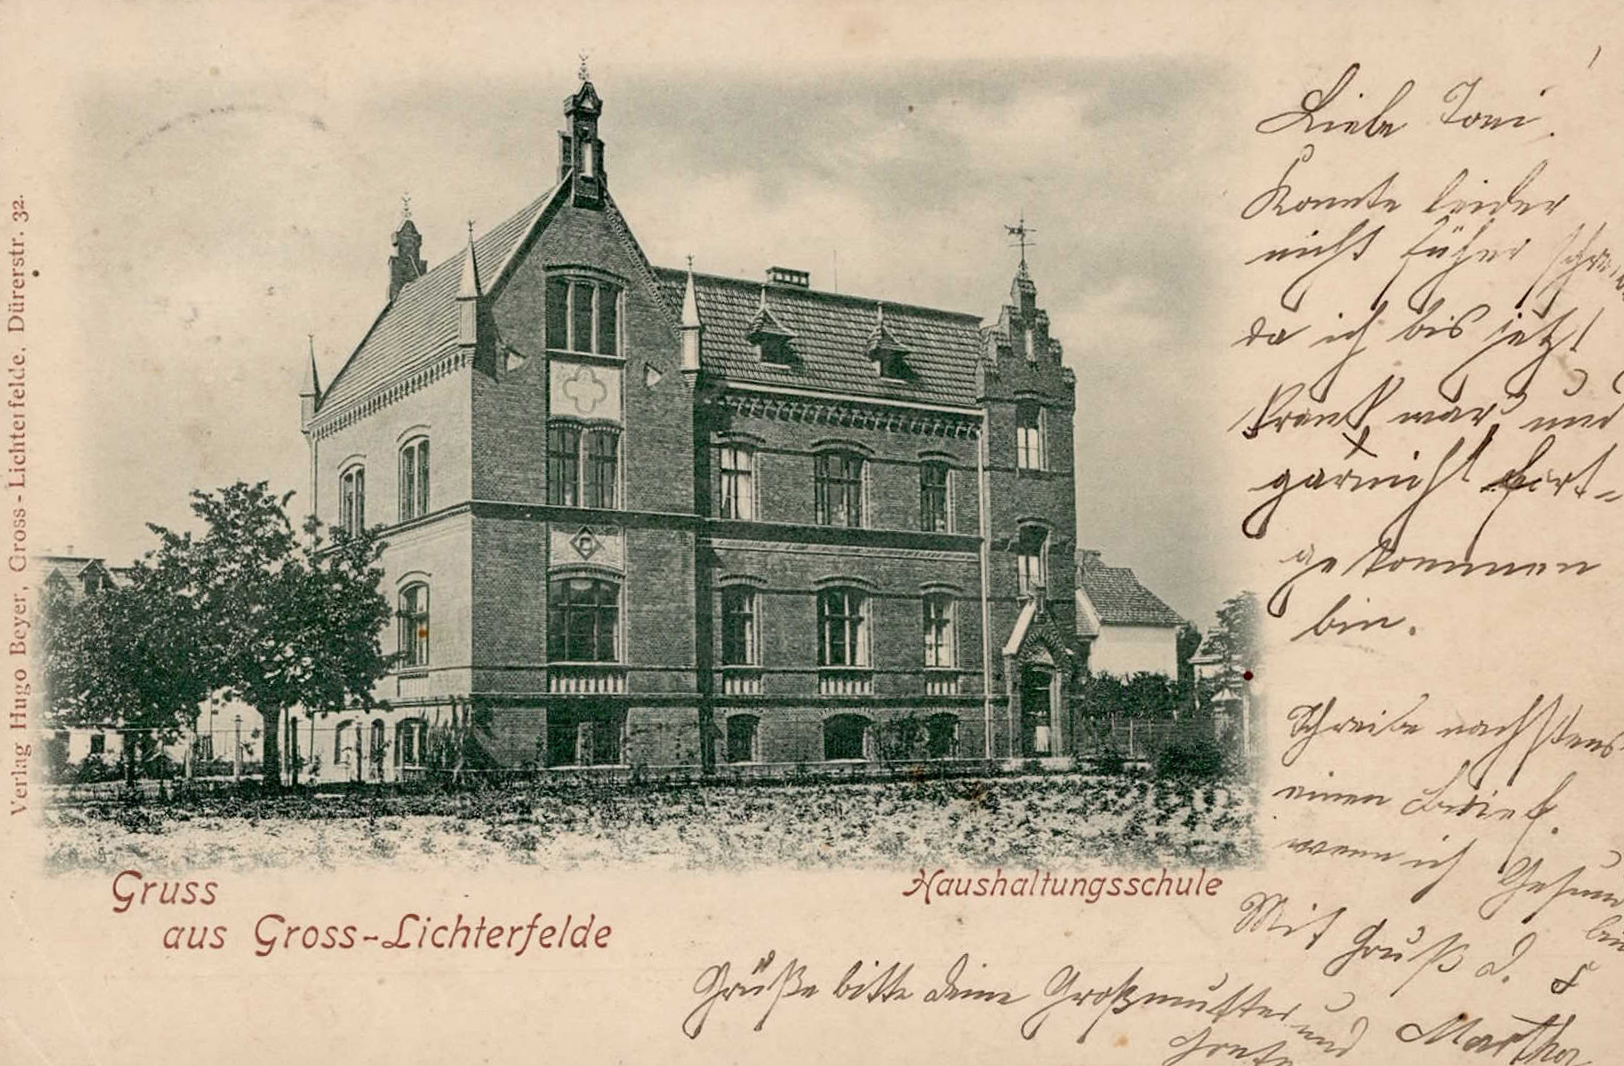 Verlag Hugo Beyer, Gross-Lichterfelde. Dürerstr. 32.
Liebe Toni.
Konnte leider
nicht früher
da ich bis jetzt
krank war und
garnicht fort-
gekommen
bin.
Schreibe nächstens
einen Brief.
wenn ich Gesund
bin
Mit Gruß d. F
Martha
Grüße bitte deine Großmutter
und
Grete
Gruss
aus Gross-Lichterfelde
Haushaltungsschule